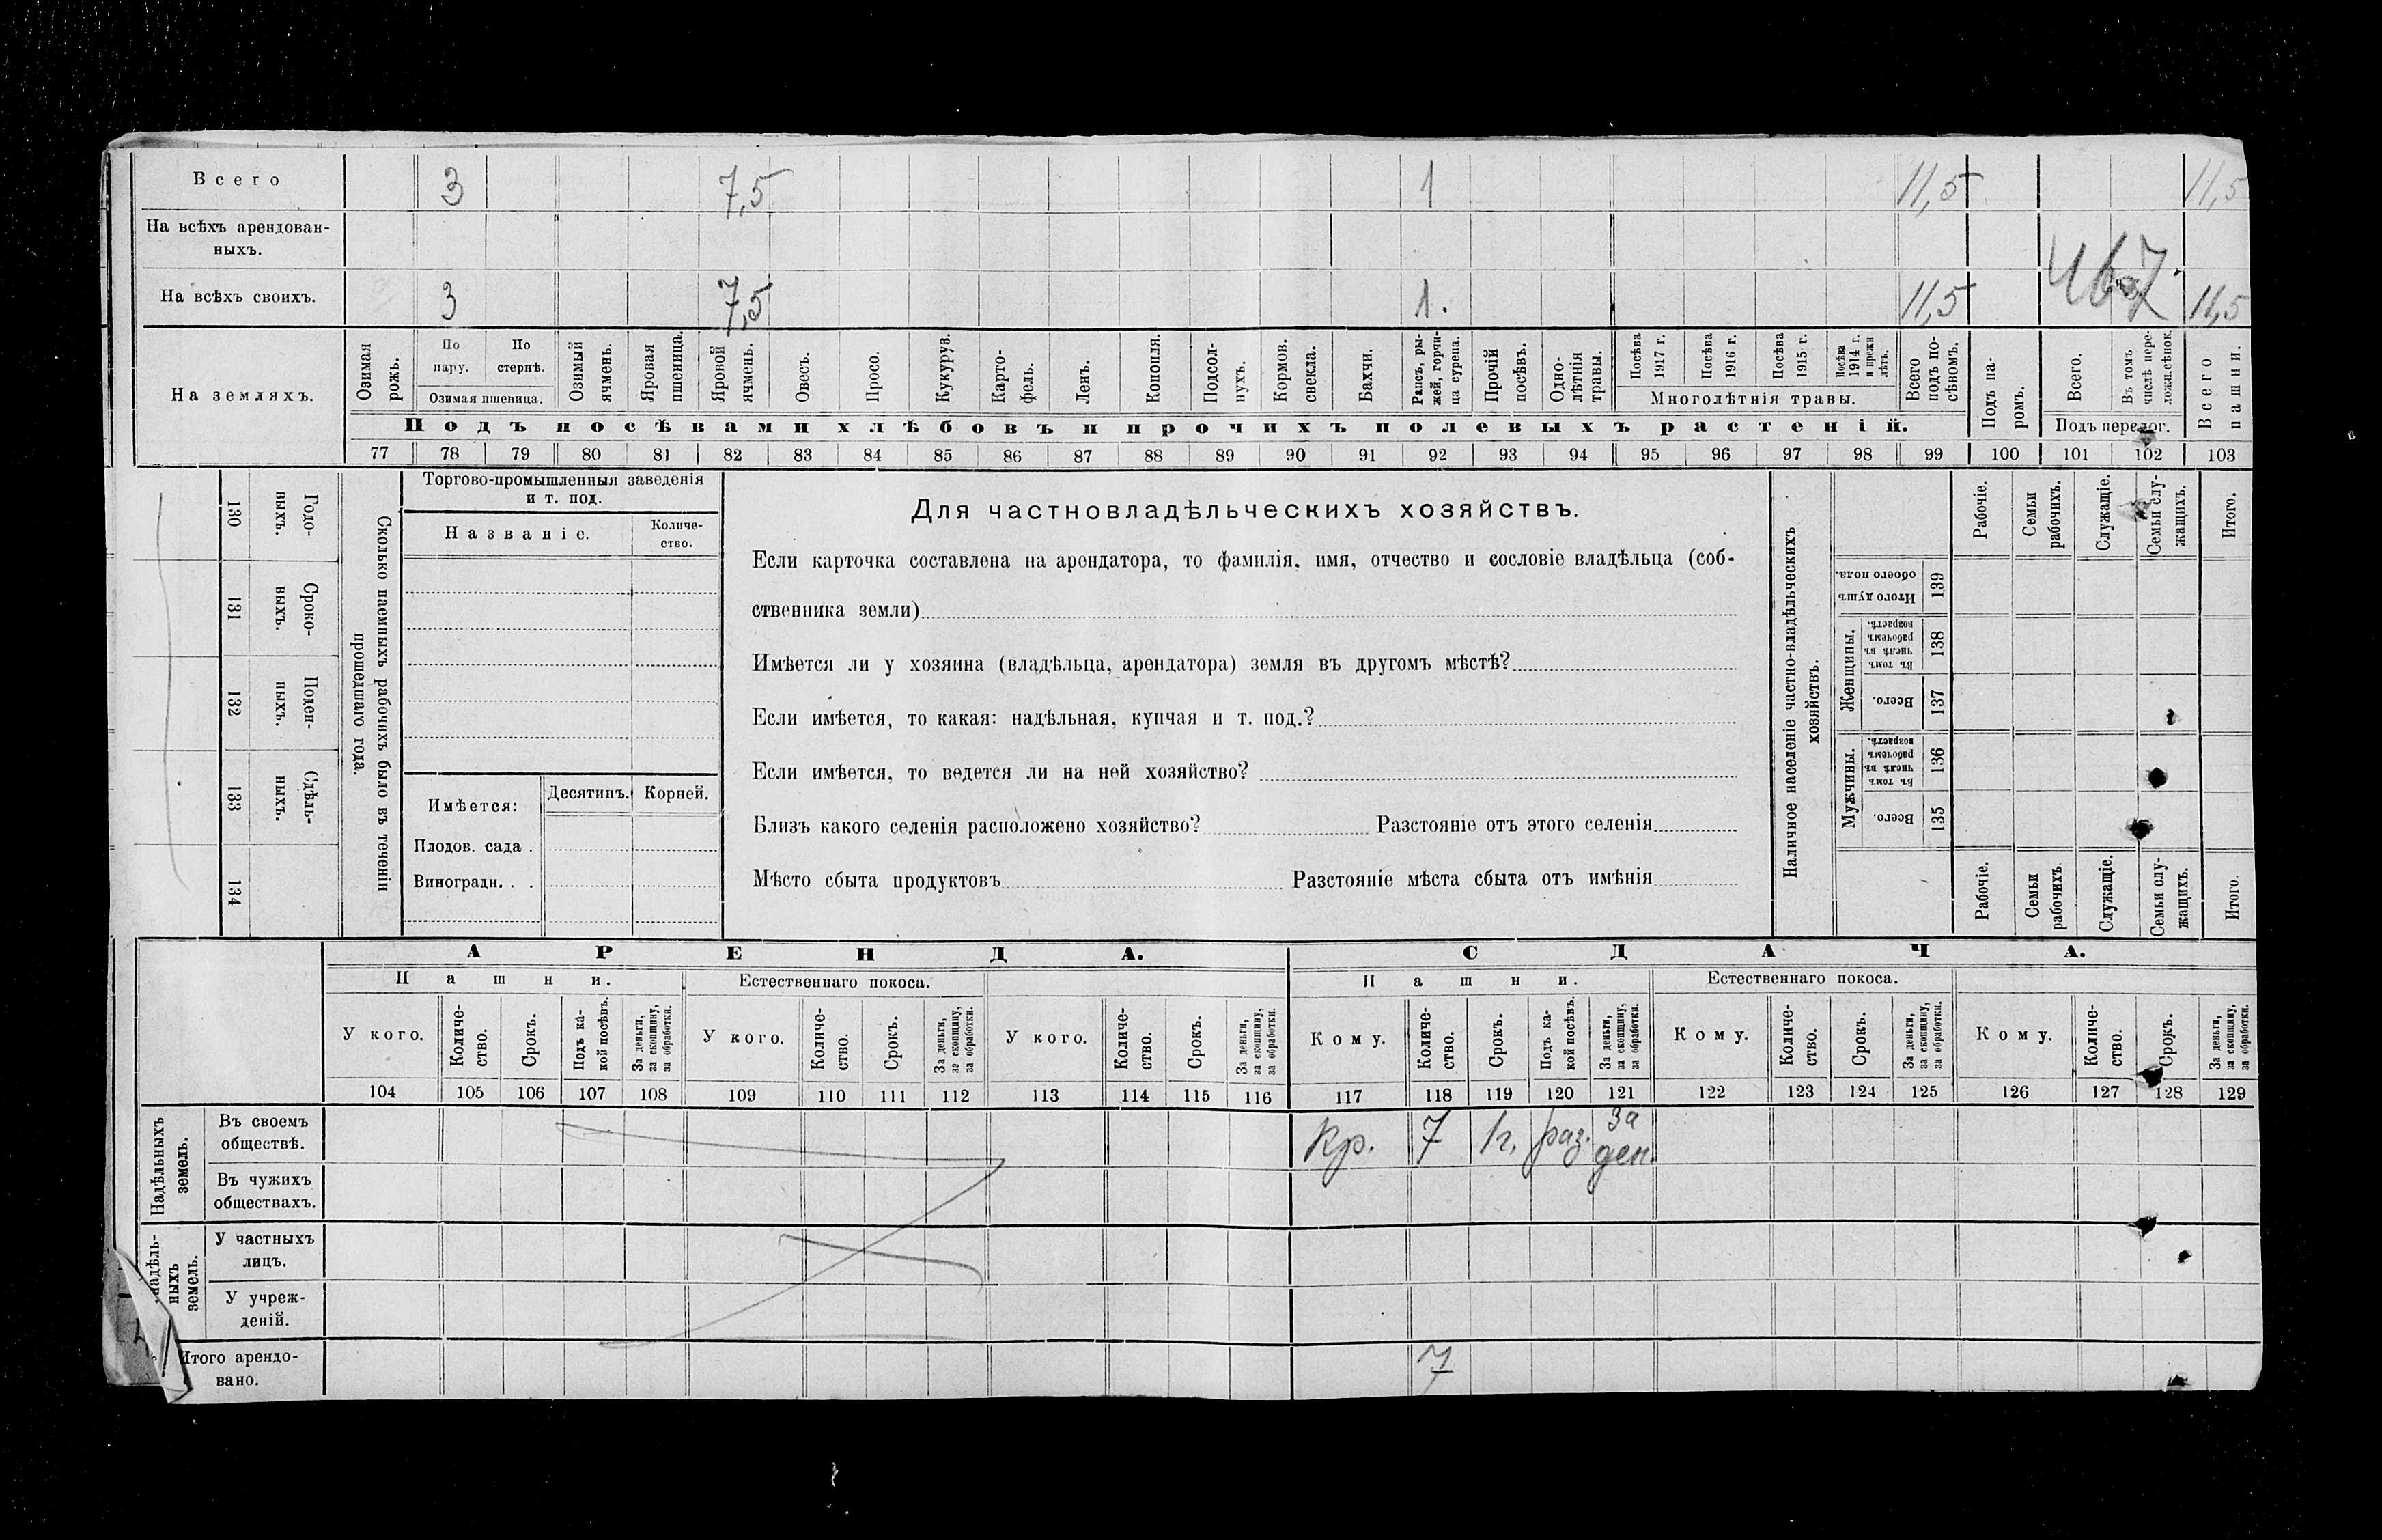 Всего 3 7,5 1 11,5 11,5
На всѣхъ арендован-
ныхъ.
467
На всѣхъ своихъ. 3 7,5 1. 11,5 11,5
На земляхъ.
Озимая рожь.
По пару.
По стернѣ.
Озимая пшеница.
Озимый ячмень.
Яровая пшеница.
Яровой ячмень.
Овесъ.
Просо.
Кукуруз.
Карто-
фель.
Ленъ.
Конопля.
Подсол-
нухъ.
Кормов. свекла.
Бахчи.
Рапсъ, ры-
жей, горчи-
ца сурепа.
Прочій посѣвъ.
Одно-
лѣтнія травы.
Посѣва 1917 г.
Посѣва 1916 г.
Посѣва 1915 г.
Посѣва 1914 г. и прежн лѣтъ.
Многолѣтнія травы.
Всего подъ по-
сѣвомъ.
Подъ па-
ромъ.
Всего.
Въ томъ числѣ пере-
ложн.сѣнок.
Подъ перелог.
Всего пашни.
Подъ посѣвами хлѣбовъ и прочихъ полевыхъ растеній.
77 78 79 80 81 82 83 84 85 86 87 88 89 90 91 92 93 94 95 96 97 98 99 100 101 102 103
130 Годо-
выхъ.
131 Сроко-
ныхъ.
132 Поден-
ныхъ.
133 Сдѣль-
ныхъ.
134
Сколько наемныхъ рабочихъ было въ теченіи
прошедшаго года.
Торгово-промышленныя заведенія
и т. под.
Названіе.
Количе-
ство.
Имѣется:
Десятинъ. Корней.
Плодов. сада .
Виноградн. . .
Для частновладѣльческихъ хозяйствъ.
Если карточка составлена на арендатора, то фамилія, имя, отчество и сословіе владѣльца (соб-
ственника земли)
Имѣется ли у хозяина (владѣльца, арендатора) земля въ другомъ мѣстѣ?
Если имѣется, то какая: надѣльная, купчая и т. под.?
Если имѣется, то ведется ли на ней хозяйство?
Близъ какого селенія расположено хозяйство? Разстояніе отъ этого селенія
Мѣсто сбыта продуктовъ Разстояніе мѣста сбыта отъ имѣнія
Наличное населеніе частно-владѣльческихъ
хозяйствъ.
Рабочіе.
Семьи рабочихъ.
Служащіе.
Семьи слу-
жащихъ.
Итого.
Итого душъ обоего пола. 139
Женщины.
Въ томъ числѣ въ рабочемъ возрастѣ. 138
Всего. 137
Мужчины.
Въ томъ числѣ въ рабочемъ возрастѣ. 136
Всего. 135
Рабочіе.
Семьи рабочихъ
Служащіе.
Семьи слу-
жащихъ.
Итого.
АРЕНДА. СДАЧА.
Пашни. Естественнаго покоса. Пашни. Естественнаго покоса.
У кого.
Количе-
ство.
Срокъ.
Подъ ка-
кой посѣвъ.
За деньги,
за скопщину,
за обработки.
У кого.
Количе-
ство.
Срокъ.
За деньги,
за скопщину,
за обработки.
У кого.
Количе-
ство.
Срокъ.
За деньги,
за скопщину,
за обработки.
Кому.
Количе-
ство.
Срокъ.
Подъ ка-
кой посѣвъ.
За деньги,
за скопщину,
за обработки.
Кому.
Количе-
ство.
Срокъ.
За деньги,
за скопщину,
за обработки.
Кому.
Количе-
ство.
Срокъ.
За деньги,
за скопщину,
за обработки.
104 105 106 107 108 109 110 111 112 113 114 115 116 117 118 119 120 121 122 123 124 125 126 127 128 129
Надѣльныхъ
земель.
Въ своемъ
обществѣ.
Кр. 7 1г. раз. за
ден.
Въ чужихъ
обществахъ.
надѣль-
ныхъ
земель.
У частныхъ
лицъ.
У учреж-
деній.
Итого арендо-
вано.
7